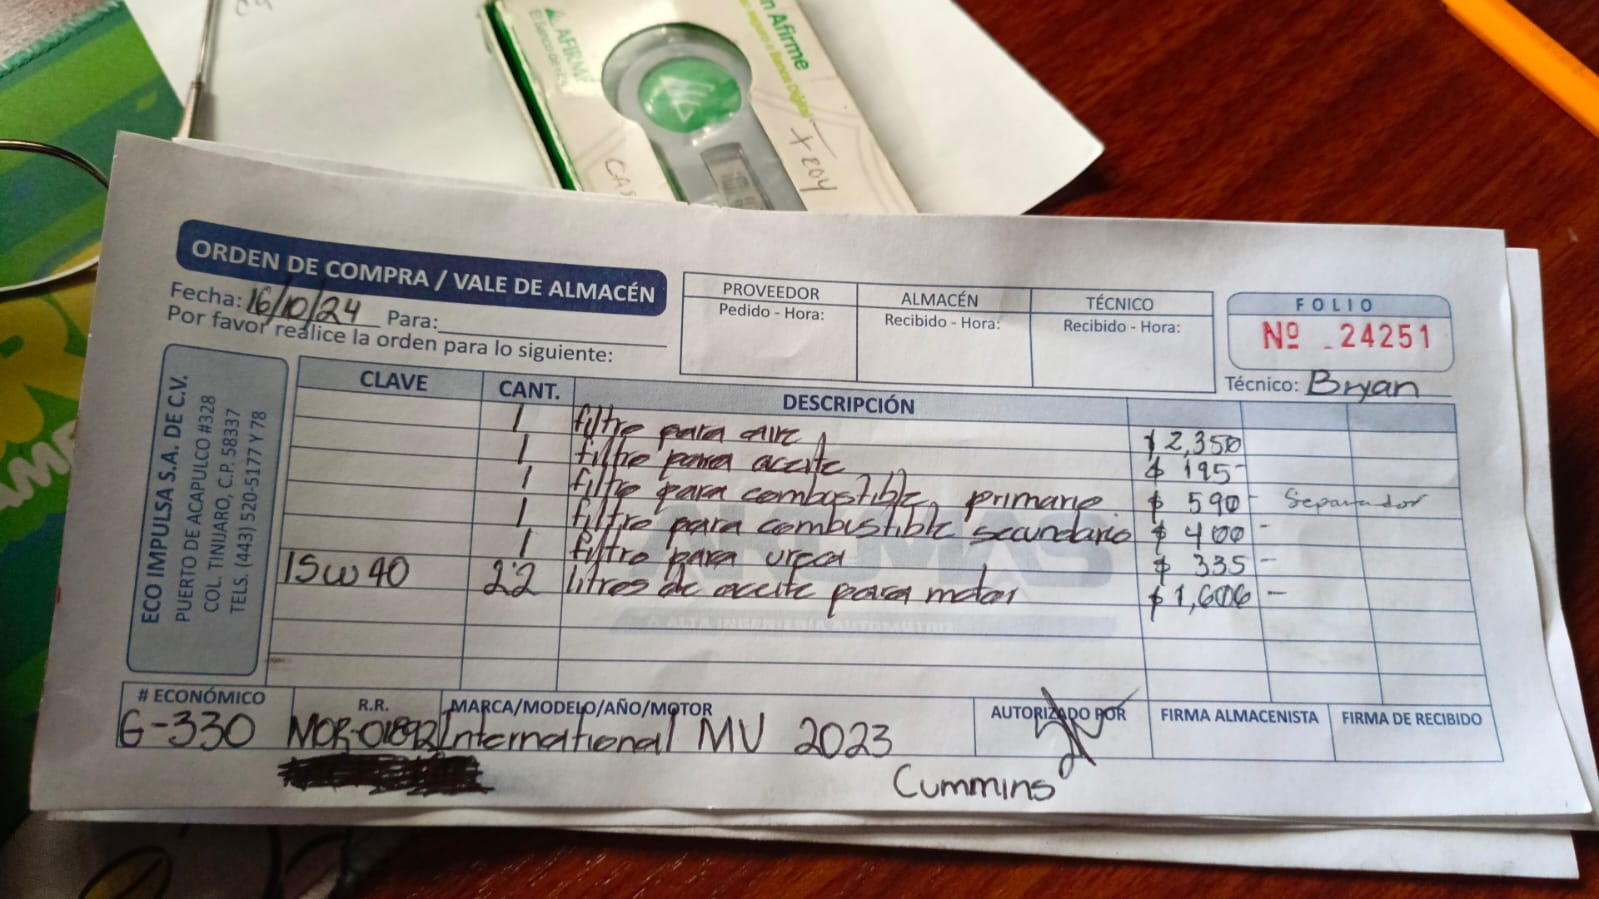 n Afirme
AFIRME
El Banco de Hoy
CAS
F204
ORDEN DE COMPRA / VALE DE ALMACÉN
Fecha: 16/10/24 Para:
Por favor realice la orden para lo siguiente:
PROVEEDOR ALMACÉN TÉCNICO
Pedido - Hora: Recibido - Hora: Recibido - Hora:
FOLIO
Nº 24251
Técnico: Bryan
ECO IMPULSA S.A. DE C.V.
PUERTO DE ACAPULCO #328
COL. TINIJARO, C.P. 58337
TELS. (443) 520-5177 Y 78
CLAVE CANT. DESCRIPCIÓN
1 filtro para aire $ 2,350
1 filtro para aceite $ 195-
1 filtro para combustible primario $ 590- Separador
1 filtro para combustible secundario $ 400-
1 filtro para urea $ 335-
15W40 22 litros de aceite para motor $ 1,606-
ALTA INGENIERÍA AUTOMOTRIZ
# ECONÓMICO R.R. MARCA/MODELO/AÑO/MOTOR AUTORIZADO POR FIRMA ALMACENISTA FIRMA DE RECIBIDO
G-330 MOR-01892 International MV 2023
Cummins